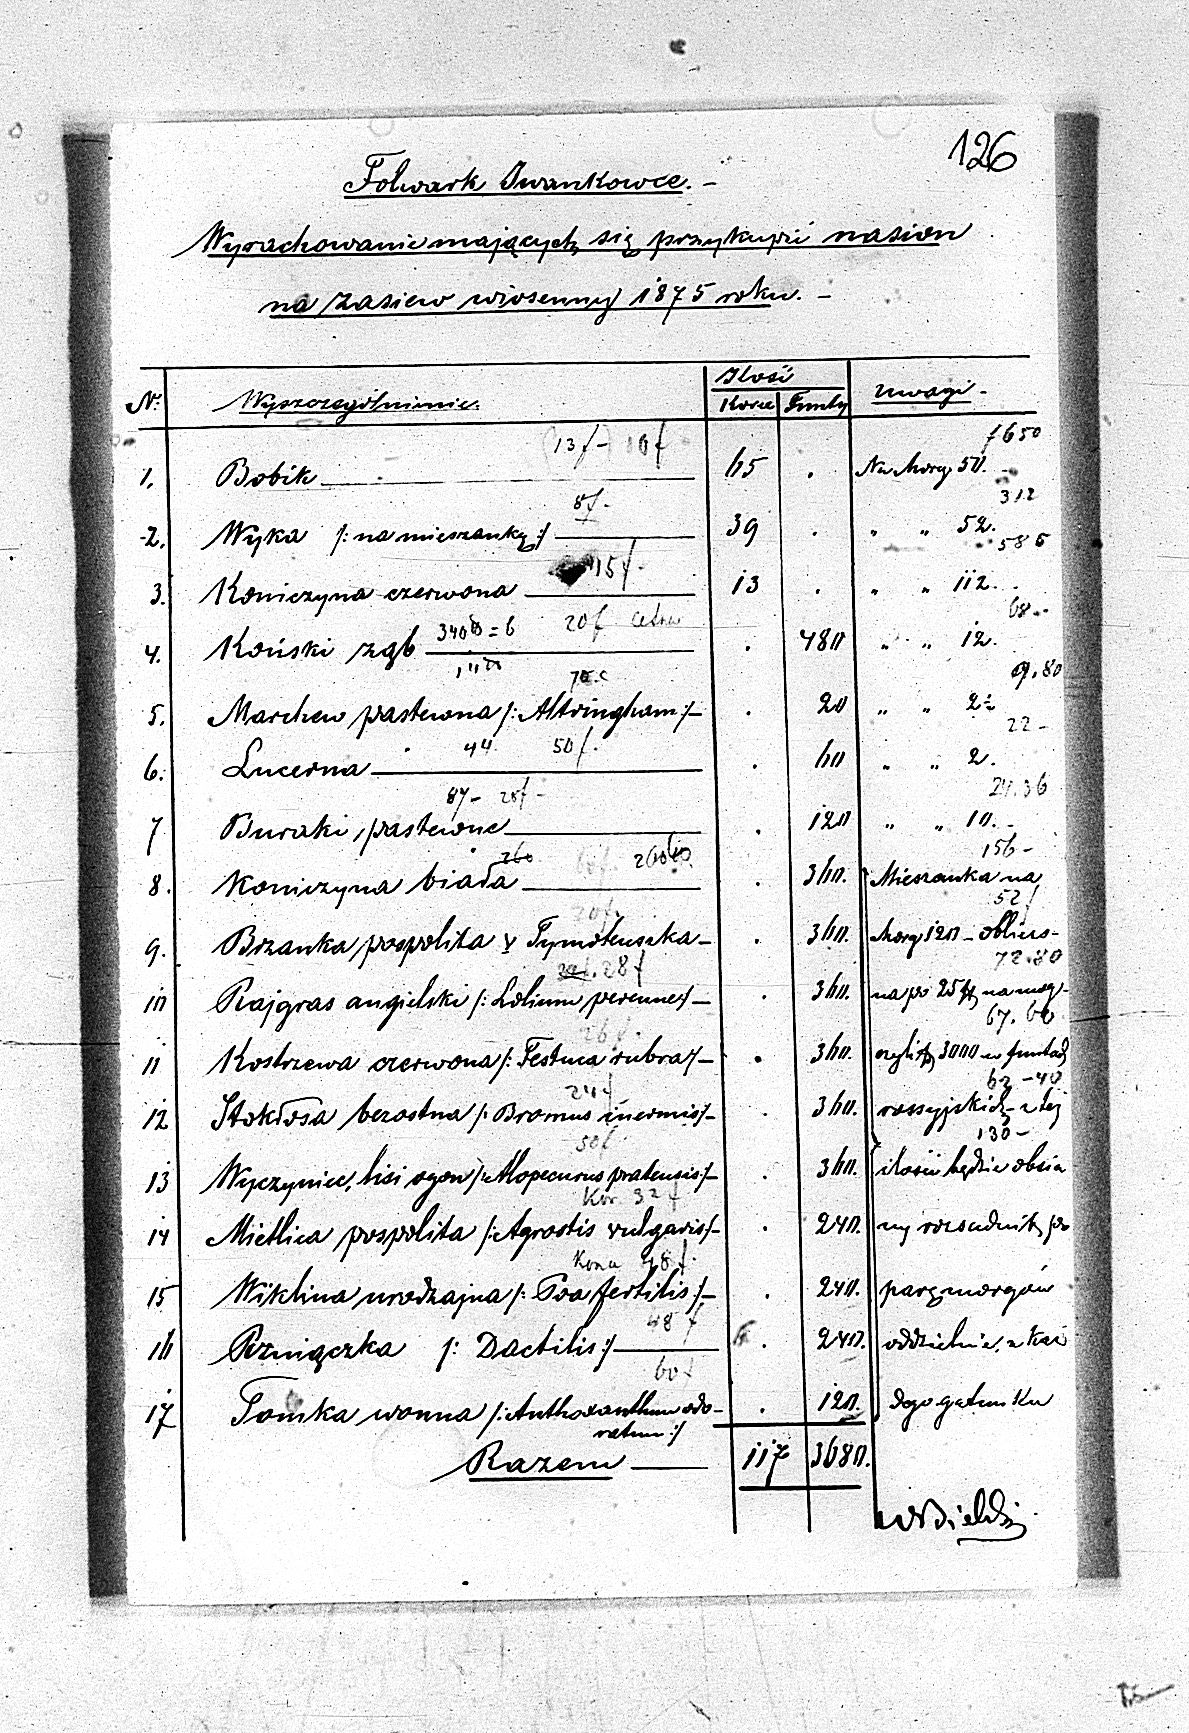 126
Folwark Iwankowce. –
Wyrachowanie mających się przykupić nasion
na zasiew wiosenny 1875 roku. –
Nr. Wyszczególnienie. Ilość Uwagi –
Korce Funty
13 f – 1650
1. Bobik 65 . Na morg 50.
8 f – 312
2. Wyka /: na mieszankę :/ 39 . " " 52.
15 f – 585
3. Koniczyna czerwona 13 . " " 112.
3400 = 6 20 f 68 –
4. Koński ząb . 480 " " 12.
9.80
5. Marchew pastewna /: Altringham :/ – . 20 " " 2
44. 50 f. 22 –
6. Lucerna . 60 " " 2.
87 –
7 Buraki pastewne . 120 " " 10. –
260 156 –
8. Koniczyna biała . 360. Mieszanka na
52 f
9. Brzanka pospolita v Tymoteuszka – . 360. morg 120 – oblicz-
28 f 72.80
10 Rajgras angielski /: Lolium perenne :/ – . 360. na po 25 na morg –
26 f. 67.60
11 Kostrzewa czerwona /: Festuca rubra :/ – . 360. czyli 3000 w funtach
24 f 62 – 40
12 Stokłosa bezostna /: Bromus inermis :/ – . 360. rossyjskich – z tej
50 f 130 –
13 Wyczyniec, lisi ogon /: Alopecurus pratensis :/ – . 360. ilości będzie obsia
32 f
14 Mietlica pospolita /: Agrostis vulgaris :/ – . 240. ny rozsadnik po
48 f.
15 Wiklina urodzajna /: Poa fertilis :/ – . 240. parę morgów
48 f
16 Rzniączka /: Dactilis :/ . 240. oddzielnie, z każ
60 f
17 Tomka wonna /: Anthoxanthum odo- . 120. dego gatunku
ratum :/
Razem 117 3680.